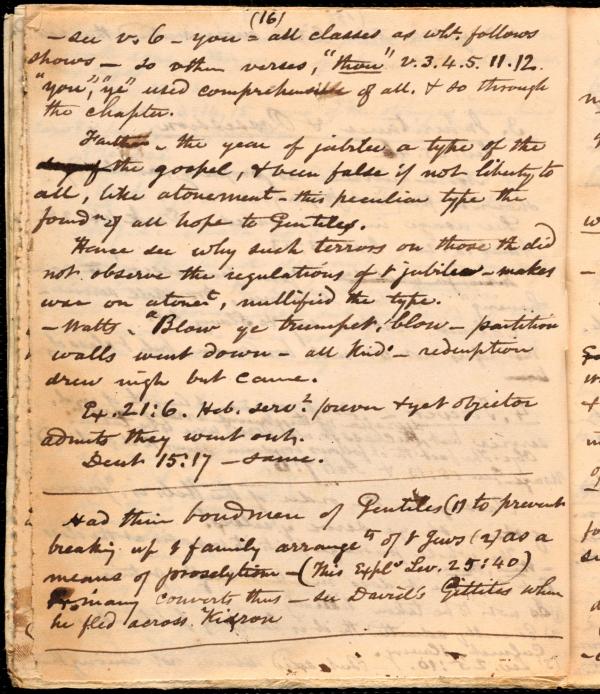 (16)
- see v. 6 - you = all classes as wht. follows
shows - so other verses, "thou" v. 3. 4. 5. 11. 12.
"you", "ye" used comprehensive of all. & so through
the chapter.
Farther - the year of jubilee a type of the
the gospel, & been false if not liberty to
all, like atonement - this peculiar type the
foundn of all hope to Gentiles.
Hence see why such terrors on those th did
not observe the regulations of t jubilee - makes
war on atonet, nullified the type.
- Watts - "Blow ye trumpet, blow - partition
walls went down - all kinds - redemption
drew nigh but came.
Ex. 21:6. Heb. servt forever & yet objector
admits they went out.
Deut 15:17 - same.
Had their bondmen of Gentiles (1) to prevent
breaking up t family arrangets of t Jews (2) as a
means of proselytism - (This Expls Lev. 25:40)
many converts thus - see David's Gittites when
he fled across Kidron